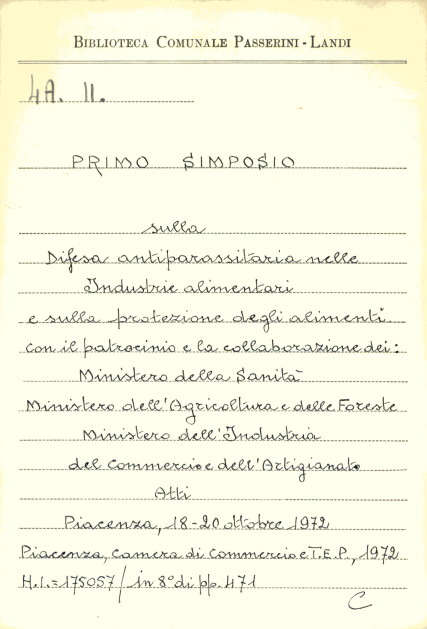 BIBLIOTECA COMUNALE PASSERINI - LANDI
4A. II.
PRIMO SIMPOSIO
sulla
Difesa antiparassitaria nelle
Industrie alimentari
e sulla protezione degli alimenti
con il patrocinio e la collaborazione dei:
Ministero della Sanità
Ministero dell'Agricoltura e delle Foreste
Ministero dell'Industria
del Commercio e dell'Artigianato
Atti
Piacenza, 18-20 ottobre 1972
Piacenza, Camera di Commercio e T.E.P., 1972
H.I.=175057/ in 8° di pp. 471
C